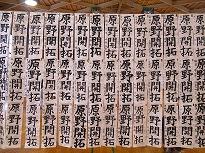 原野開拓
原野開拓
原野開拓
原野開拓
原野開拓
原野開拓
原野開拓
原野開拓
原野開拓
原野開拓
原野開拓
原野開拓
原野開拓
原野開拓
原野開拓
原野開拓
原野開拓
原野開拓
原野開拓
原野開拓
原野開拓
原野開拓
原野開拓
原野開拓
原野開拓
原野開拓
原野開拓
原野開拓
原野開拓
原野開拓